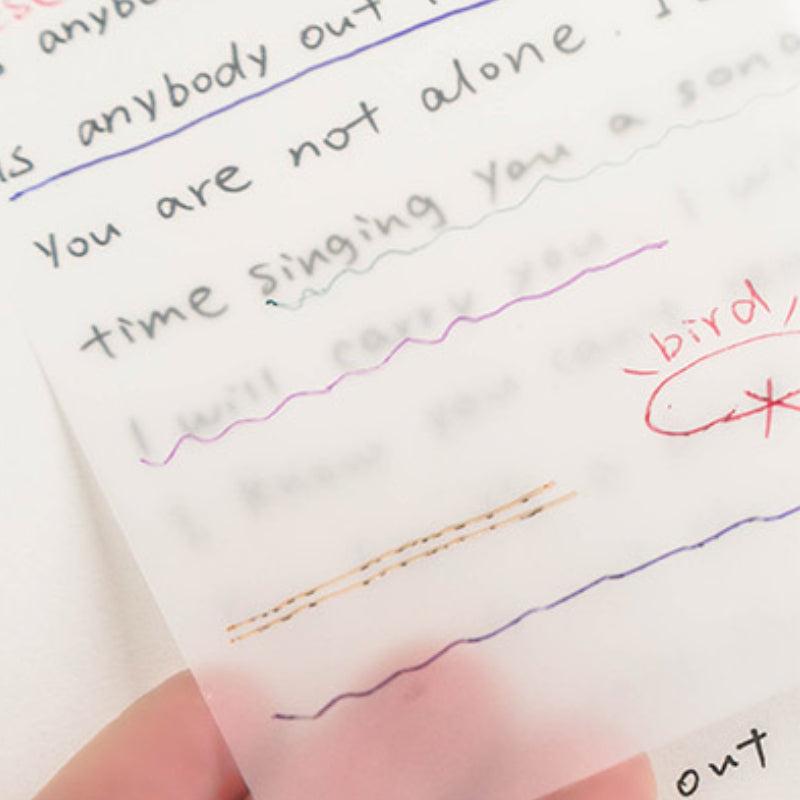 anybo
Is anybody out
You are not alone. I
time singing you a song
I will carry you. I wi
I know you can't
bird
out